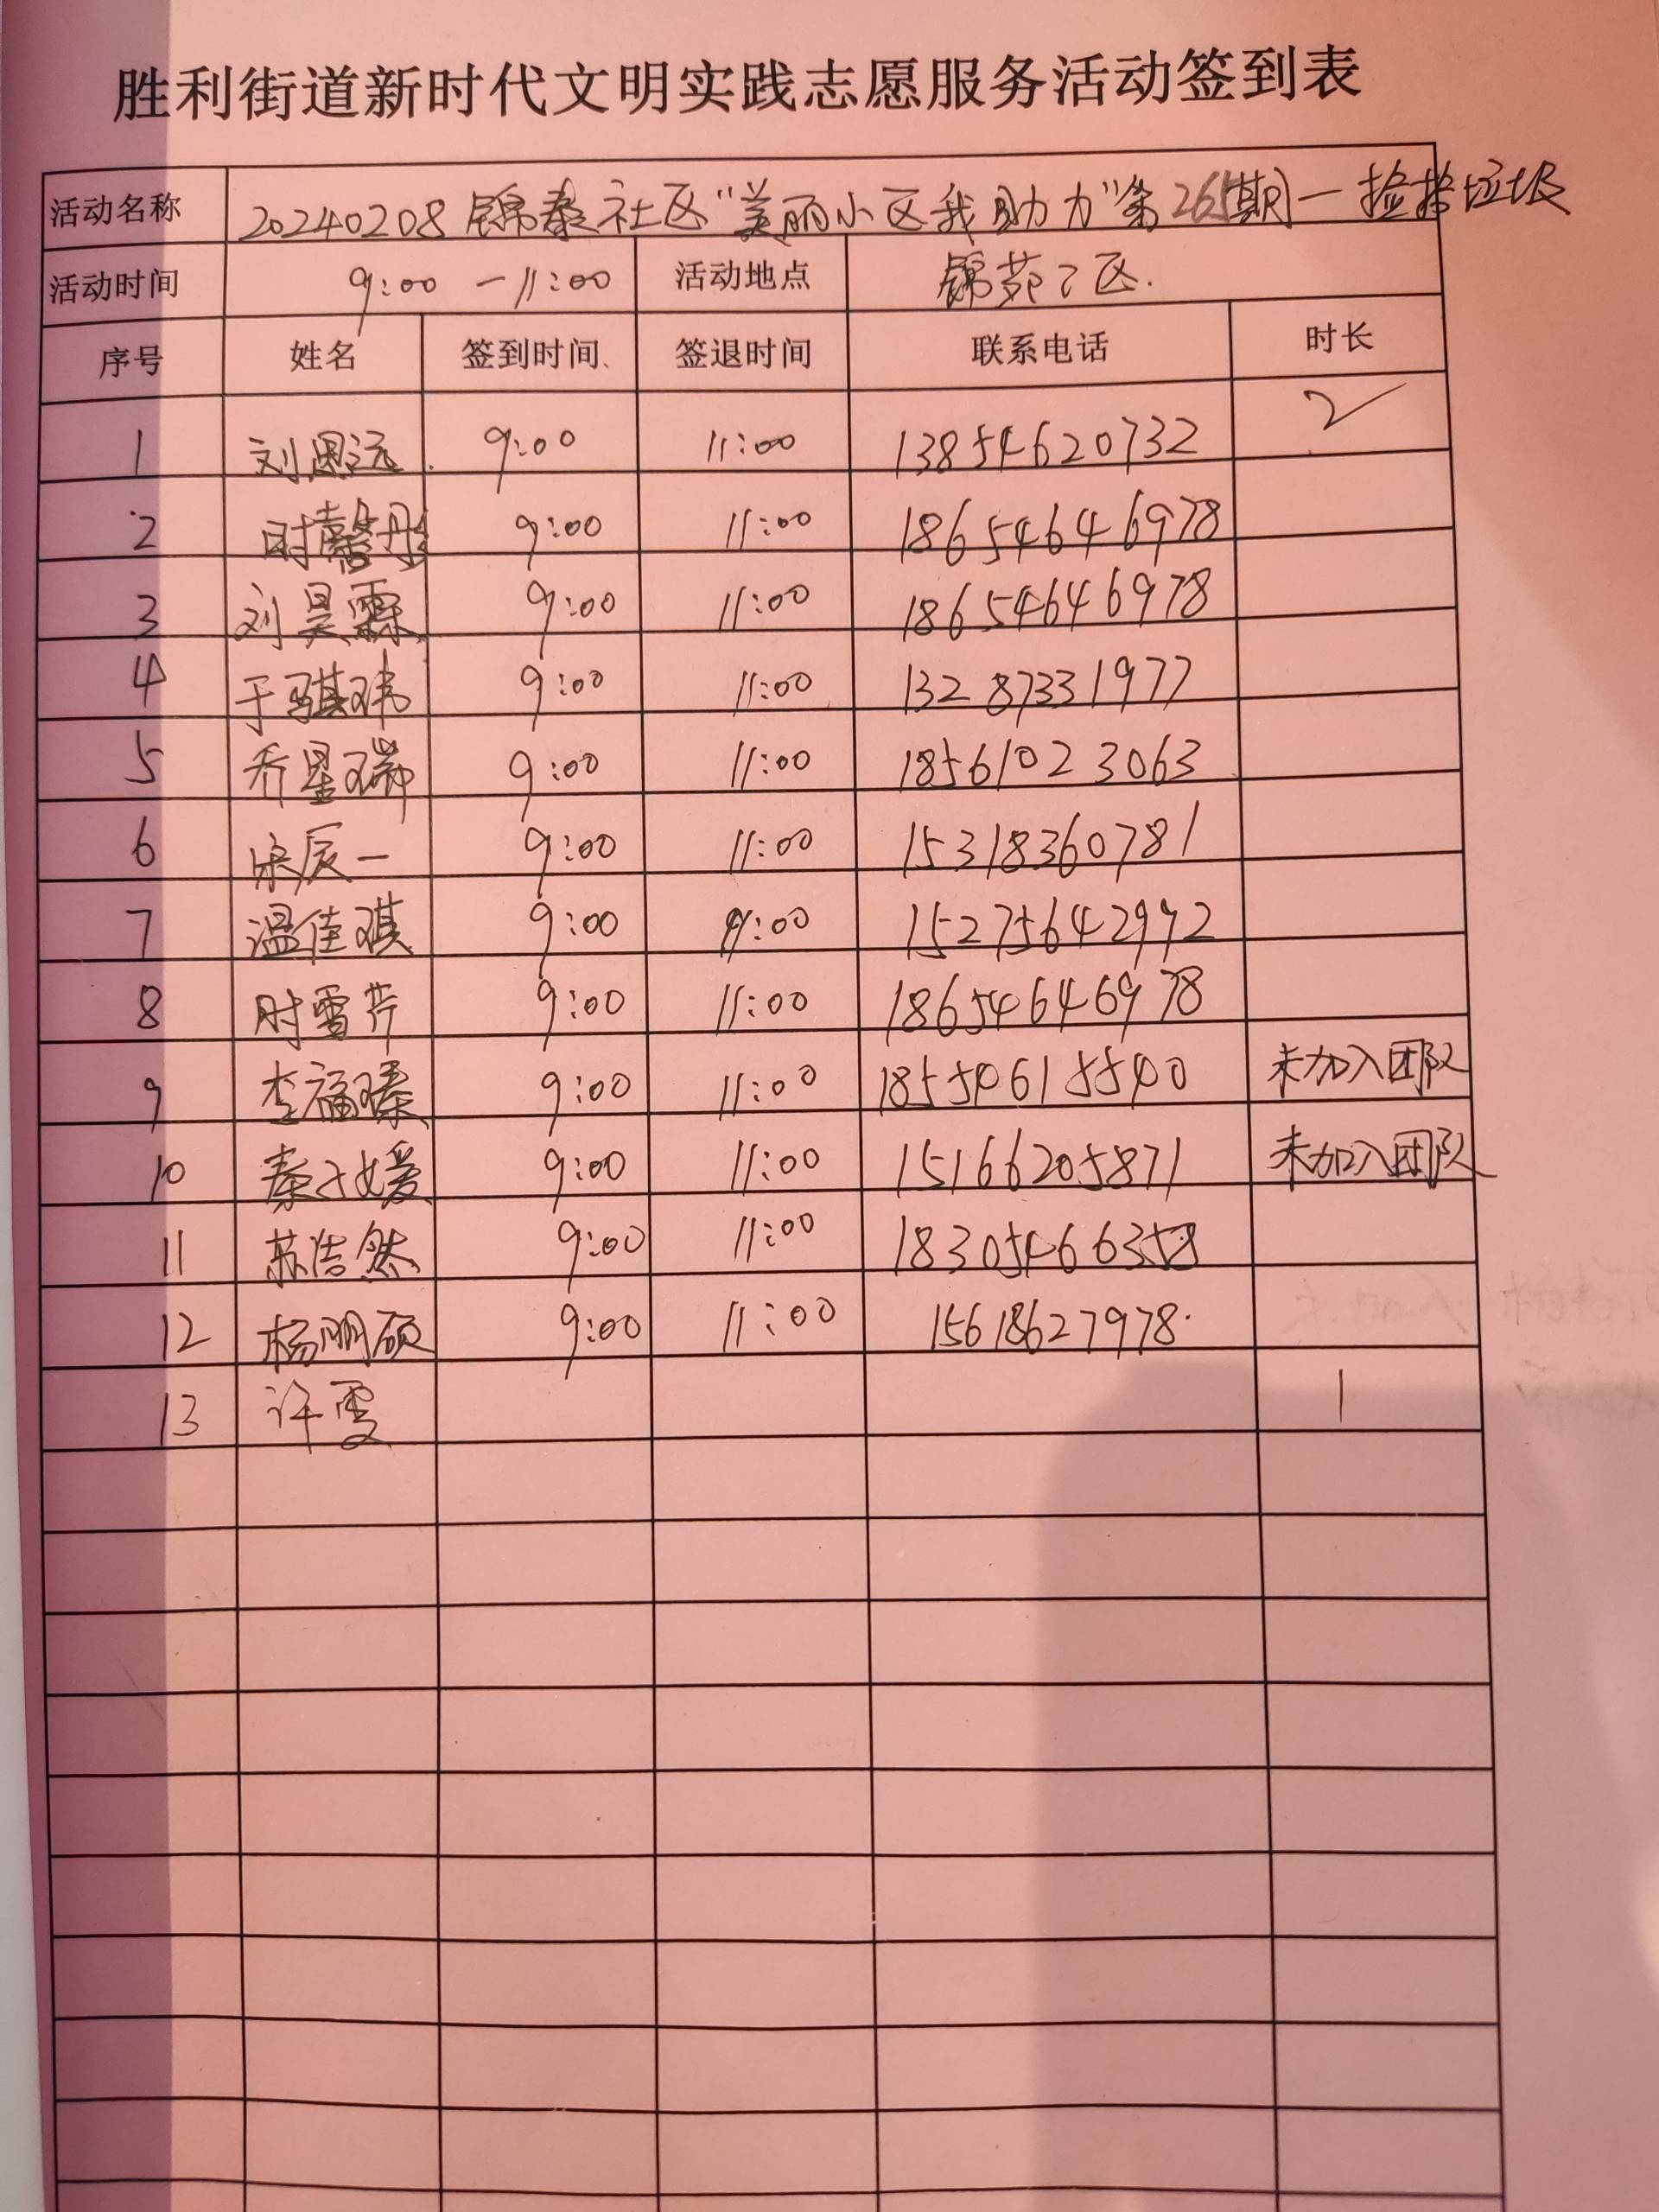 胜利街道新时代文明实践志愿服务活动签到表
活动名称 20240208锦泰社区“美丽小区我助力”第265期—捡拾垃圾
活动时间 9:00 — 11:00 活动地点 锦苑2区.
序号 姓名 签到时间 签退时间 联系电话 时长
1 刘恩远 9:00 11:00 13854620732 2
2 时馨彤 9:00 11:00 18654646978
3 刘昊霖 9:00 11:00 18654646978
4 于骐玮 9:00 11:00 13287331977
5 乔星瑞 9:00 11:00 18561023063
6 宋辰一 9:00 11:00 15318360781
7 温佳琪 9:00 :00 15275642992
8 时雪芹 9:00 11:00 18654646978
9 李福臻 9:00 11:00 18554615540 未加入团队
10 秦子媛 9:00 11:00 15166205871 未加入团队
11 苏浩然 9:00 11:00 18305466358
12 杨明硕 9:00 11:00 15618627978.
13 许雯 1